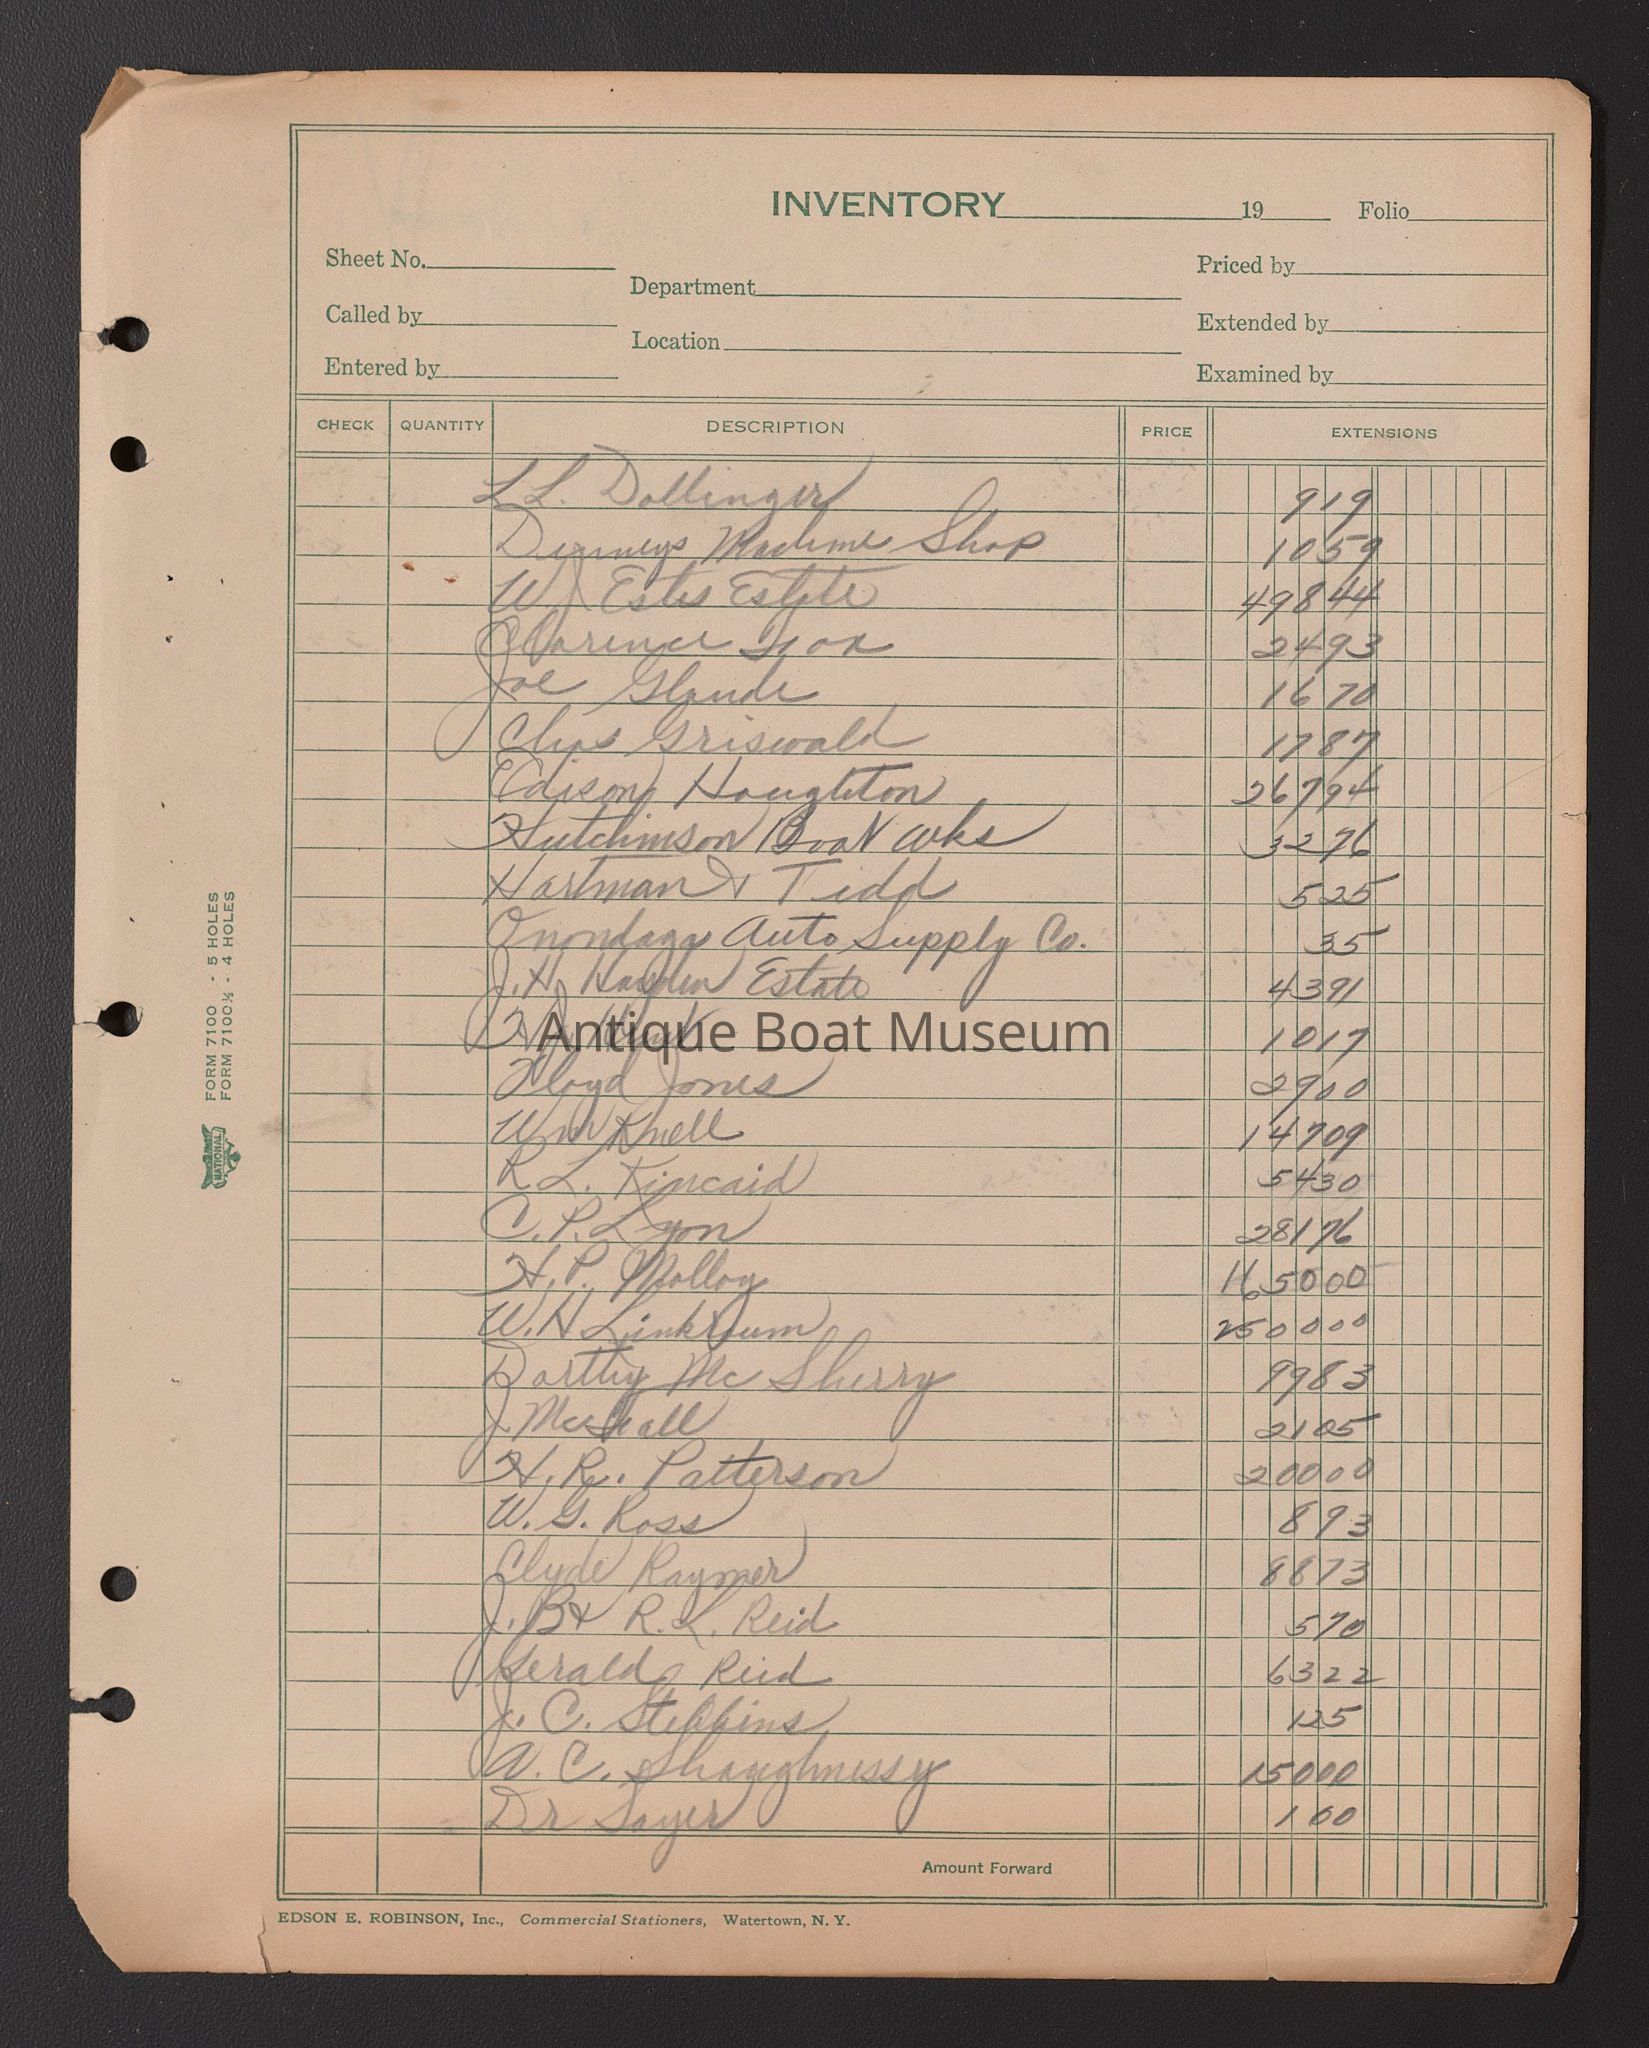 INVENTORY 19 Folio
Sheet No. Priced by
Department
Called by Extended by
Location
Entered by Examined by
CHECK QUANTITY DESCRIPTION PRICE EXTENSIONS
L L. Dollinger 919
Machine Shop 1059
W J Estes Estate 49844
Clarence Fox 2493
Joe Glande 1670
Chas Griswald 1787
Edison Houghton 26794
Hutchinson Boat Wks 3276
Hartman & Tidd 525
Onondaga Auto Supply Co. 35
J. H. Hayden Estate 4391
Antique Boat Museum
1017
Floyd Jones 2900
Wm Knell 14709
R L. Kincaid 5430
C. P. Lyon 28176
H. P. Molloy 165000
W. H Linkroum 250000
Dorthy Mc Sherry 9983
J. 2105
H. R. Patterson 20000
W. G. Ross 893
Clyde Raymer 8873
J. B & R. L. Reid 570
Gerald Reid 6322
J. C. Stebbins 125
W. C. Shaughnessy 15000
Dr Sayer 100
Amount Forward
EDSON E. ROBINSON, Inc., Commercial Stationers, Watertown, N. Y.
FORM 7100 - 5 HOLES
FORM 7100½ - 4 HOLES
NATIONAL